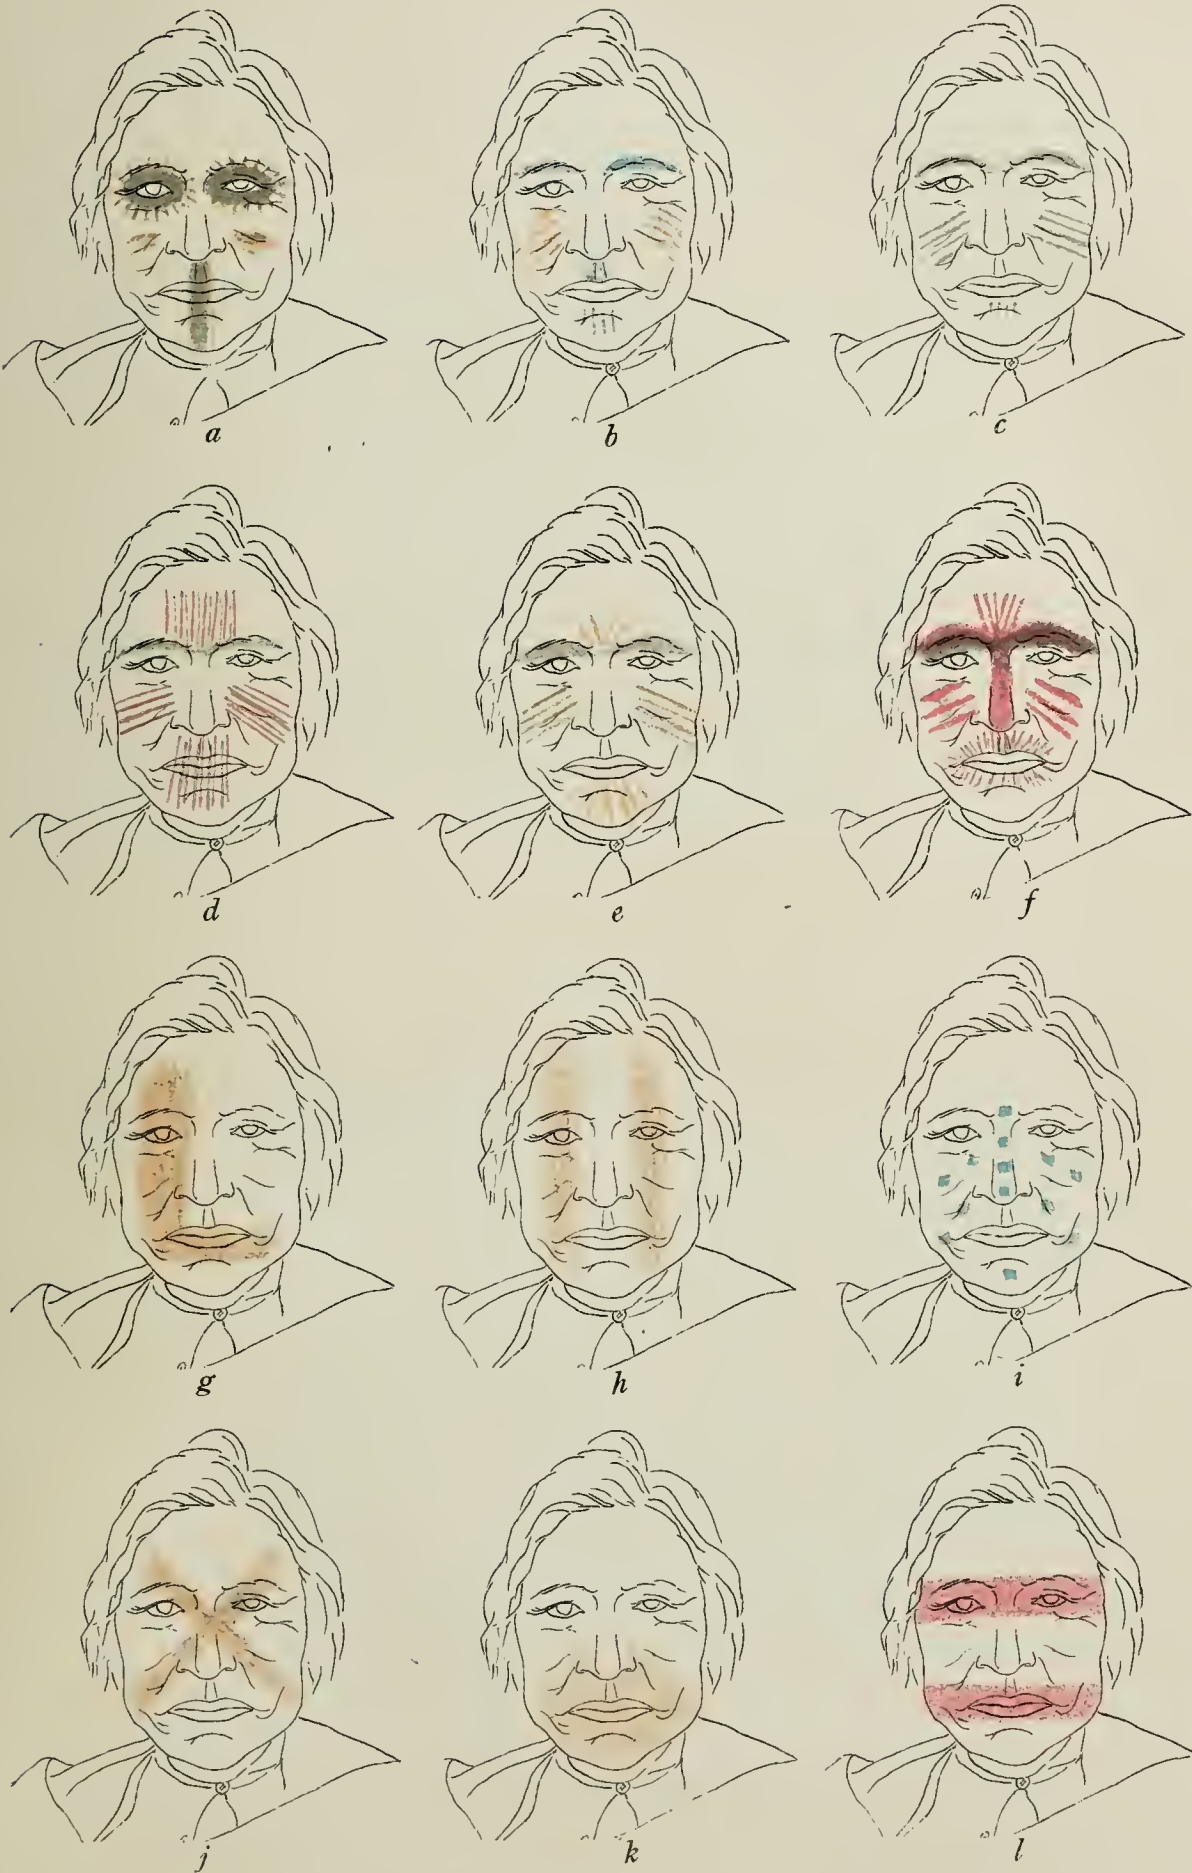 a b c
d e f
g h i
j k l